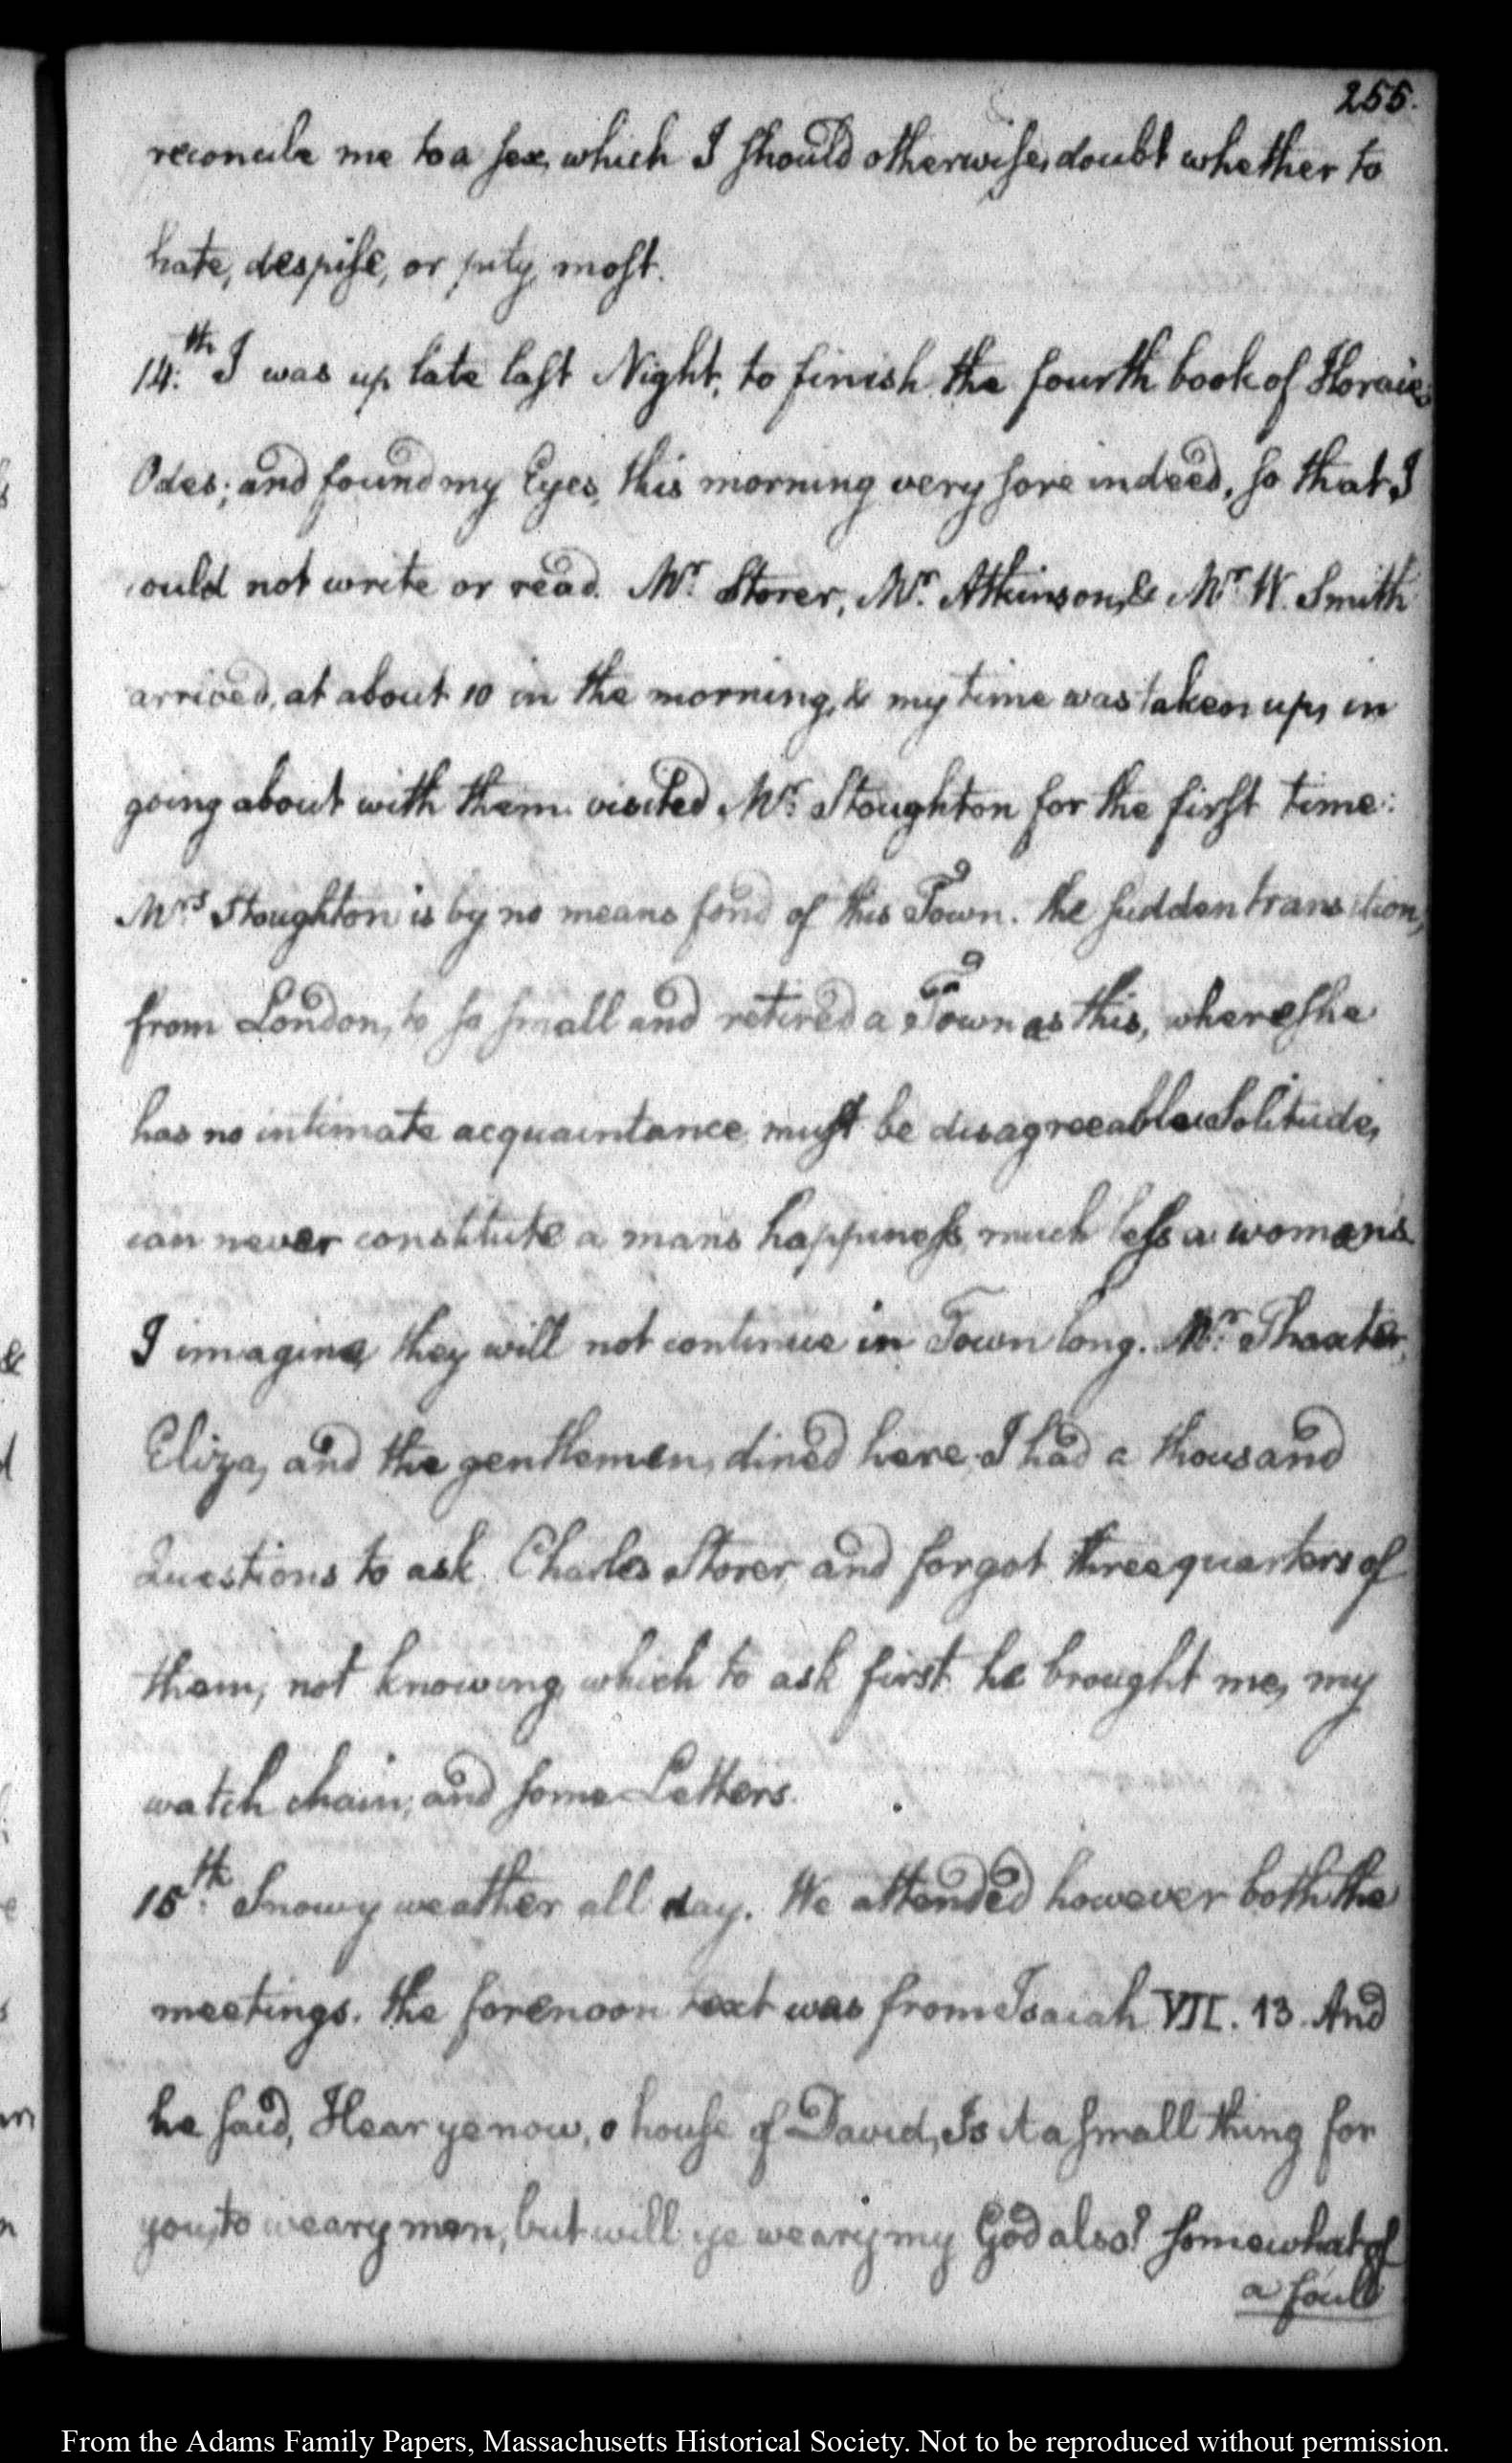 255.
reconcile me to a sex, which I should otherwise, doubt whether to
hate, despise, or pity, most.
14.th I was up late last Night, to finish the fourth book of Horaces
Odes; and found my Eyes, this morning very sore indeed, so that I
could not write or read. Mr. Storer, Mr. Atkinson, & Mr. W. Smith
arrived, at about 10 in the morning, & my time was taken up, in
going about with them. visited Mr. Stoughton for the first time:
Mrs Stoughton is by no means fond of this Town. the sudden transition,
from London, to so small and retired a Town as this, where she
has no intimate acquaintance, must be disagreeable Solitude,
can never constitute a mans happiness, much less a woman's
I imagine, they will not continue in Town long. Mr. Thaxter,
Eliza, and the gentlemen, dined here, I had a thousand
Questions to ask Charles Storer, and forgot three quarters of
them, not knowing, which to ask first. he brought me, my
watch chain, and some Letters.
15.th Snowy weather all day. We attended however both the
meetings. the forenoon text was from Isaiah VII. 13. And
he said, Hear ye now, o house of David, Is it a small thing for
you, to weary men, but will ye weary my God also? somewhat of
a soul
From the Adams Family Papers, Massachusetts Historical Society. Not to be reproduced without permission.